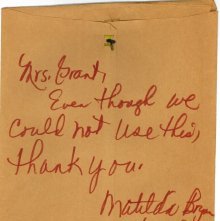 Mrs. Grant,
Even though we
could not use this,
thank you.
Matilda